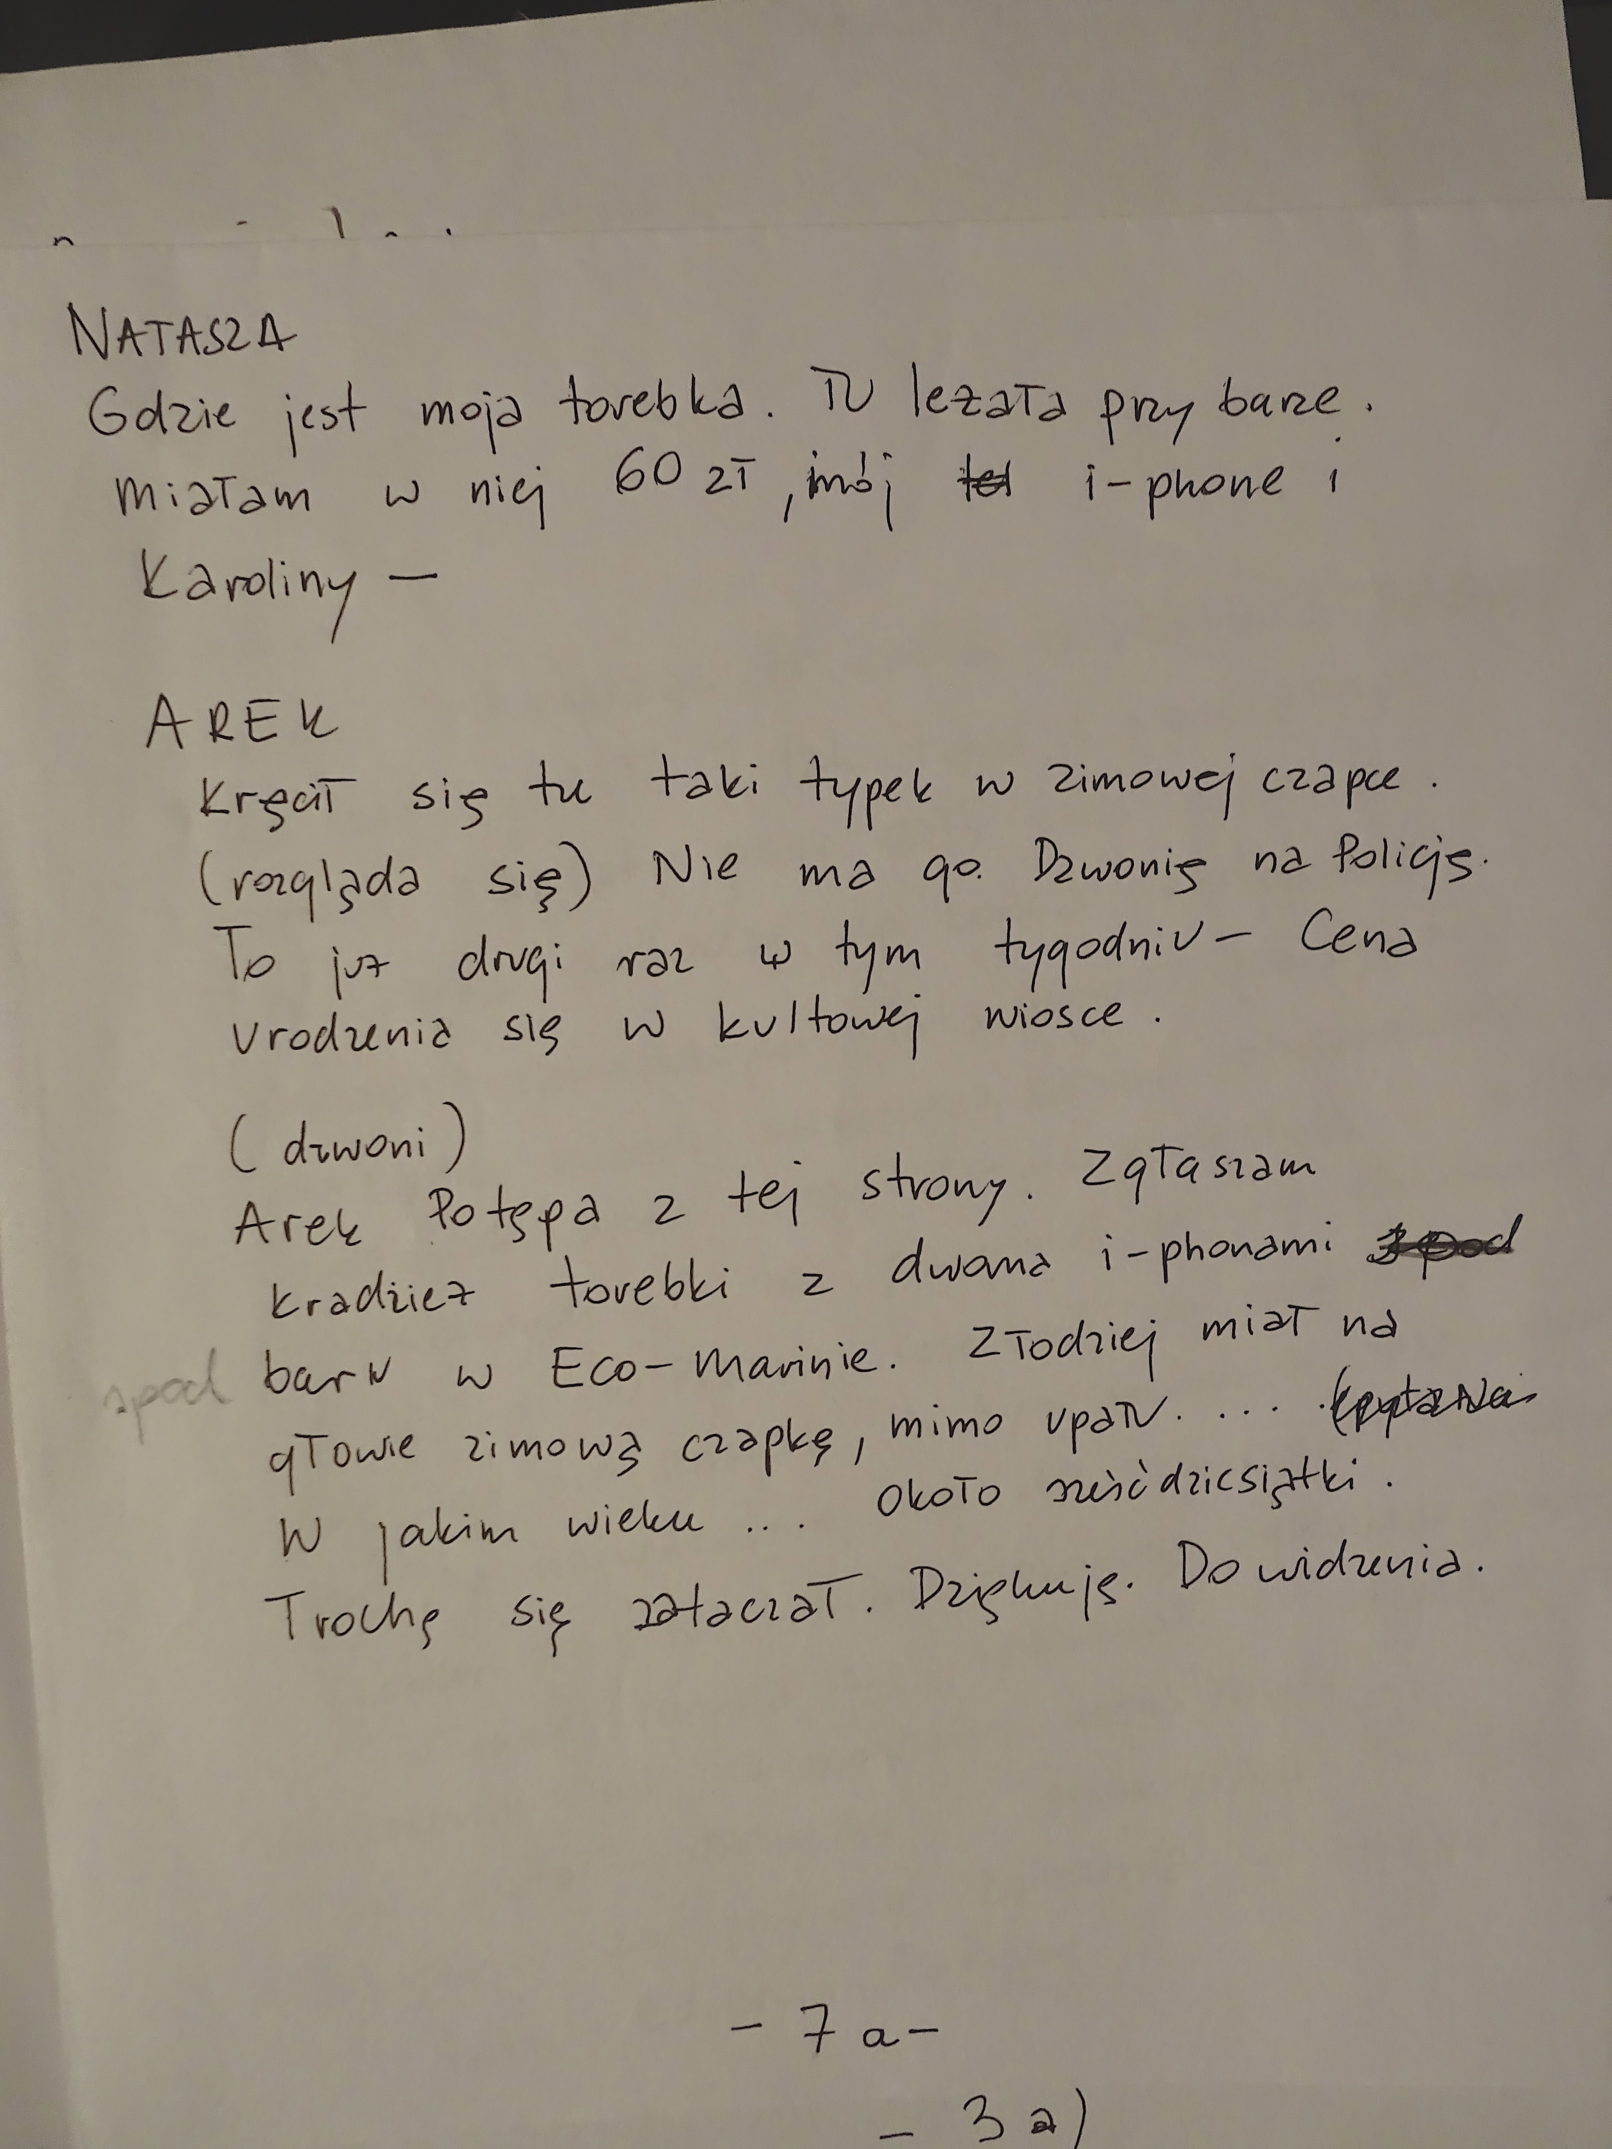 NATASZA
Gdzie jest moja torebka. Tu leżała przy barze.
Miałam w niej 60 zł, mój tel i-phone i
Karoliny —
AREK
Kręcił się tu taki typek w zimowej czapce.
(rozgląda się) Nie ma go. Dzwonię na Policję.
To już drugi raz w tym tygodniu – Cena
urodzenia się w kultowej wiosce.
(dzwoni)
Arek Potępa z tej strony. Zgłaszam
kradzież torebki z dwoma i-phonami spod
spod baru w Eco-Marinie. Złodziej miał na
głowie zimową czapkę, mimo upału. ...
W jakim wieku ... około sześćdziesiątki.
Trochę się zataczał. Dziękuję. Do widzenia.
- 7a -
- 3a)